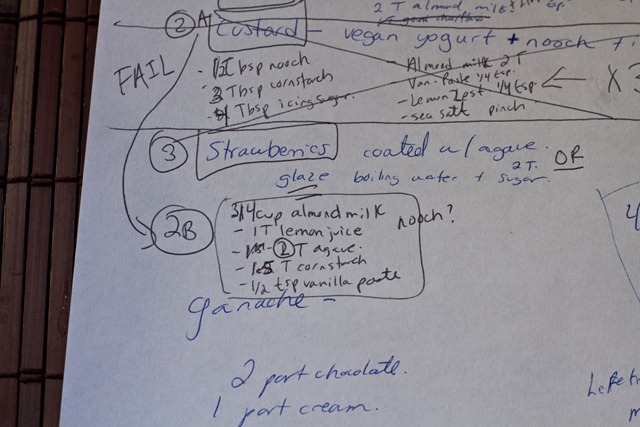 2 T almond milk
2 A
Custard - vegan yogurt + nooch
FAIL
- 1 Tbsp nooch
3 Tbsp cornstarch
Tbsp icing sugar.
- Almond milk 2 T
Van. Paste 1/4 tsp.
- Lemon Zest 1/4 tsp.
- sea salt pinch
x 3
3
Strawberries coated w/agave. OR
glaze boiling water + sugar. 2 T.
2B
3/4 cup almond milk
nooch?
- 1 T lemon juice
- 2 T agave.
- 1.5 T cornstarch
- 1/2 tsp vanilla paste
ganache -
2 part chocolate.
1 part cream.
4